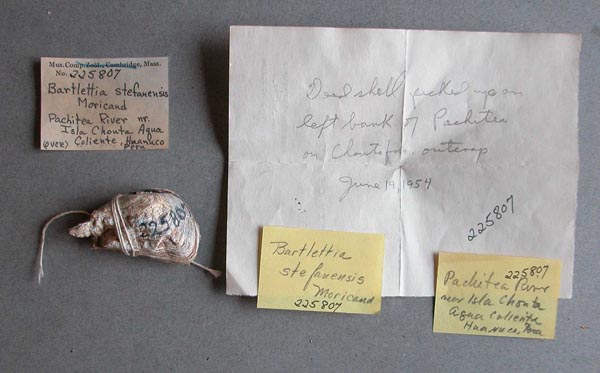 Mus. Comp. Zoöl., Cambridge, Mass.
No. 225807
Bartlettia stefanensis
Moricand
Pachitea River nr.
Isla Chonta Agua
(over) Caliente, Huanuco
Peru
225807
Dead shell picked up on
left bank of Pachitea
on Chonta fm outcrop
June 19, 1954
225807
Bartlettia
stefanensis
Moricand
225807
225807
Pachitea River
near Isla Chonta
Agua Caliente
Huanuco, Peru